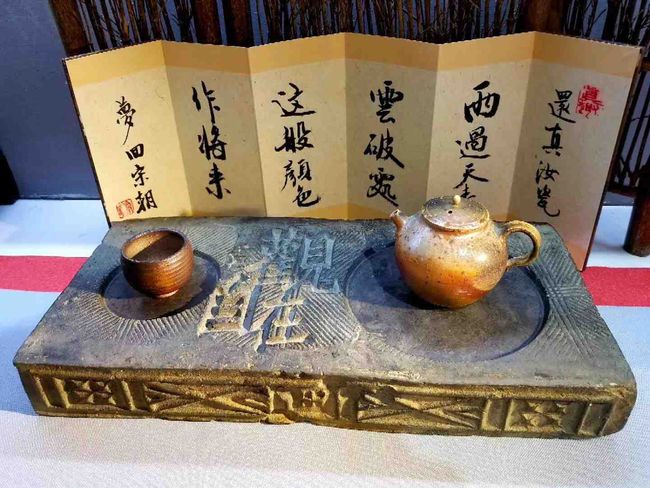 還真汝瓷
雨過天青
雲破處
这般顏色
作將来
夢回宋朝
觀自在